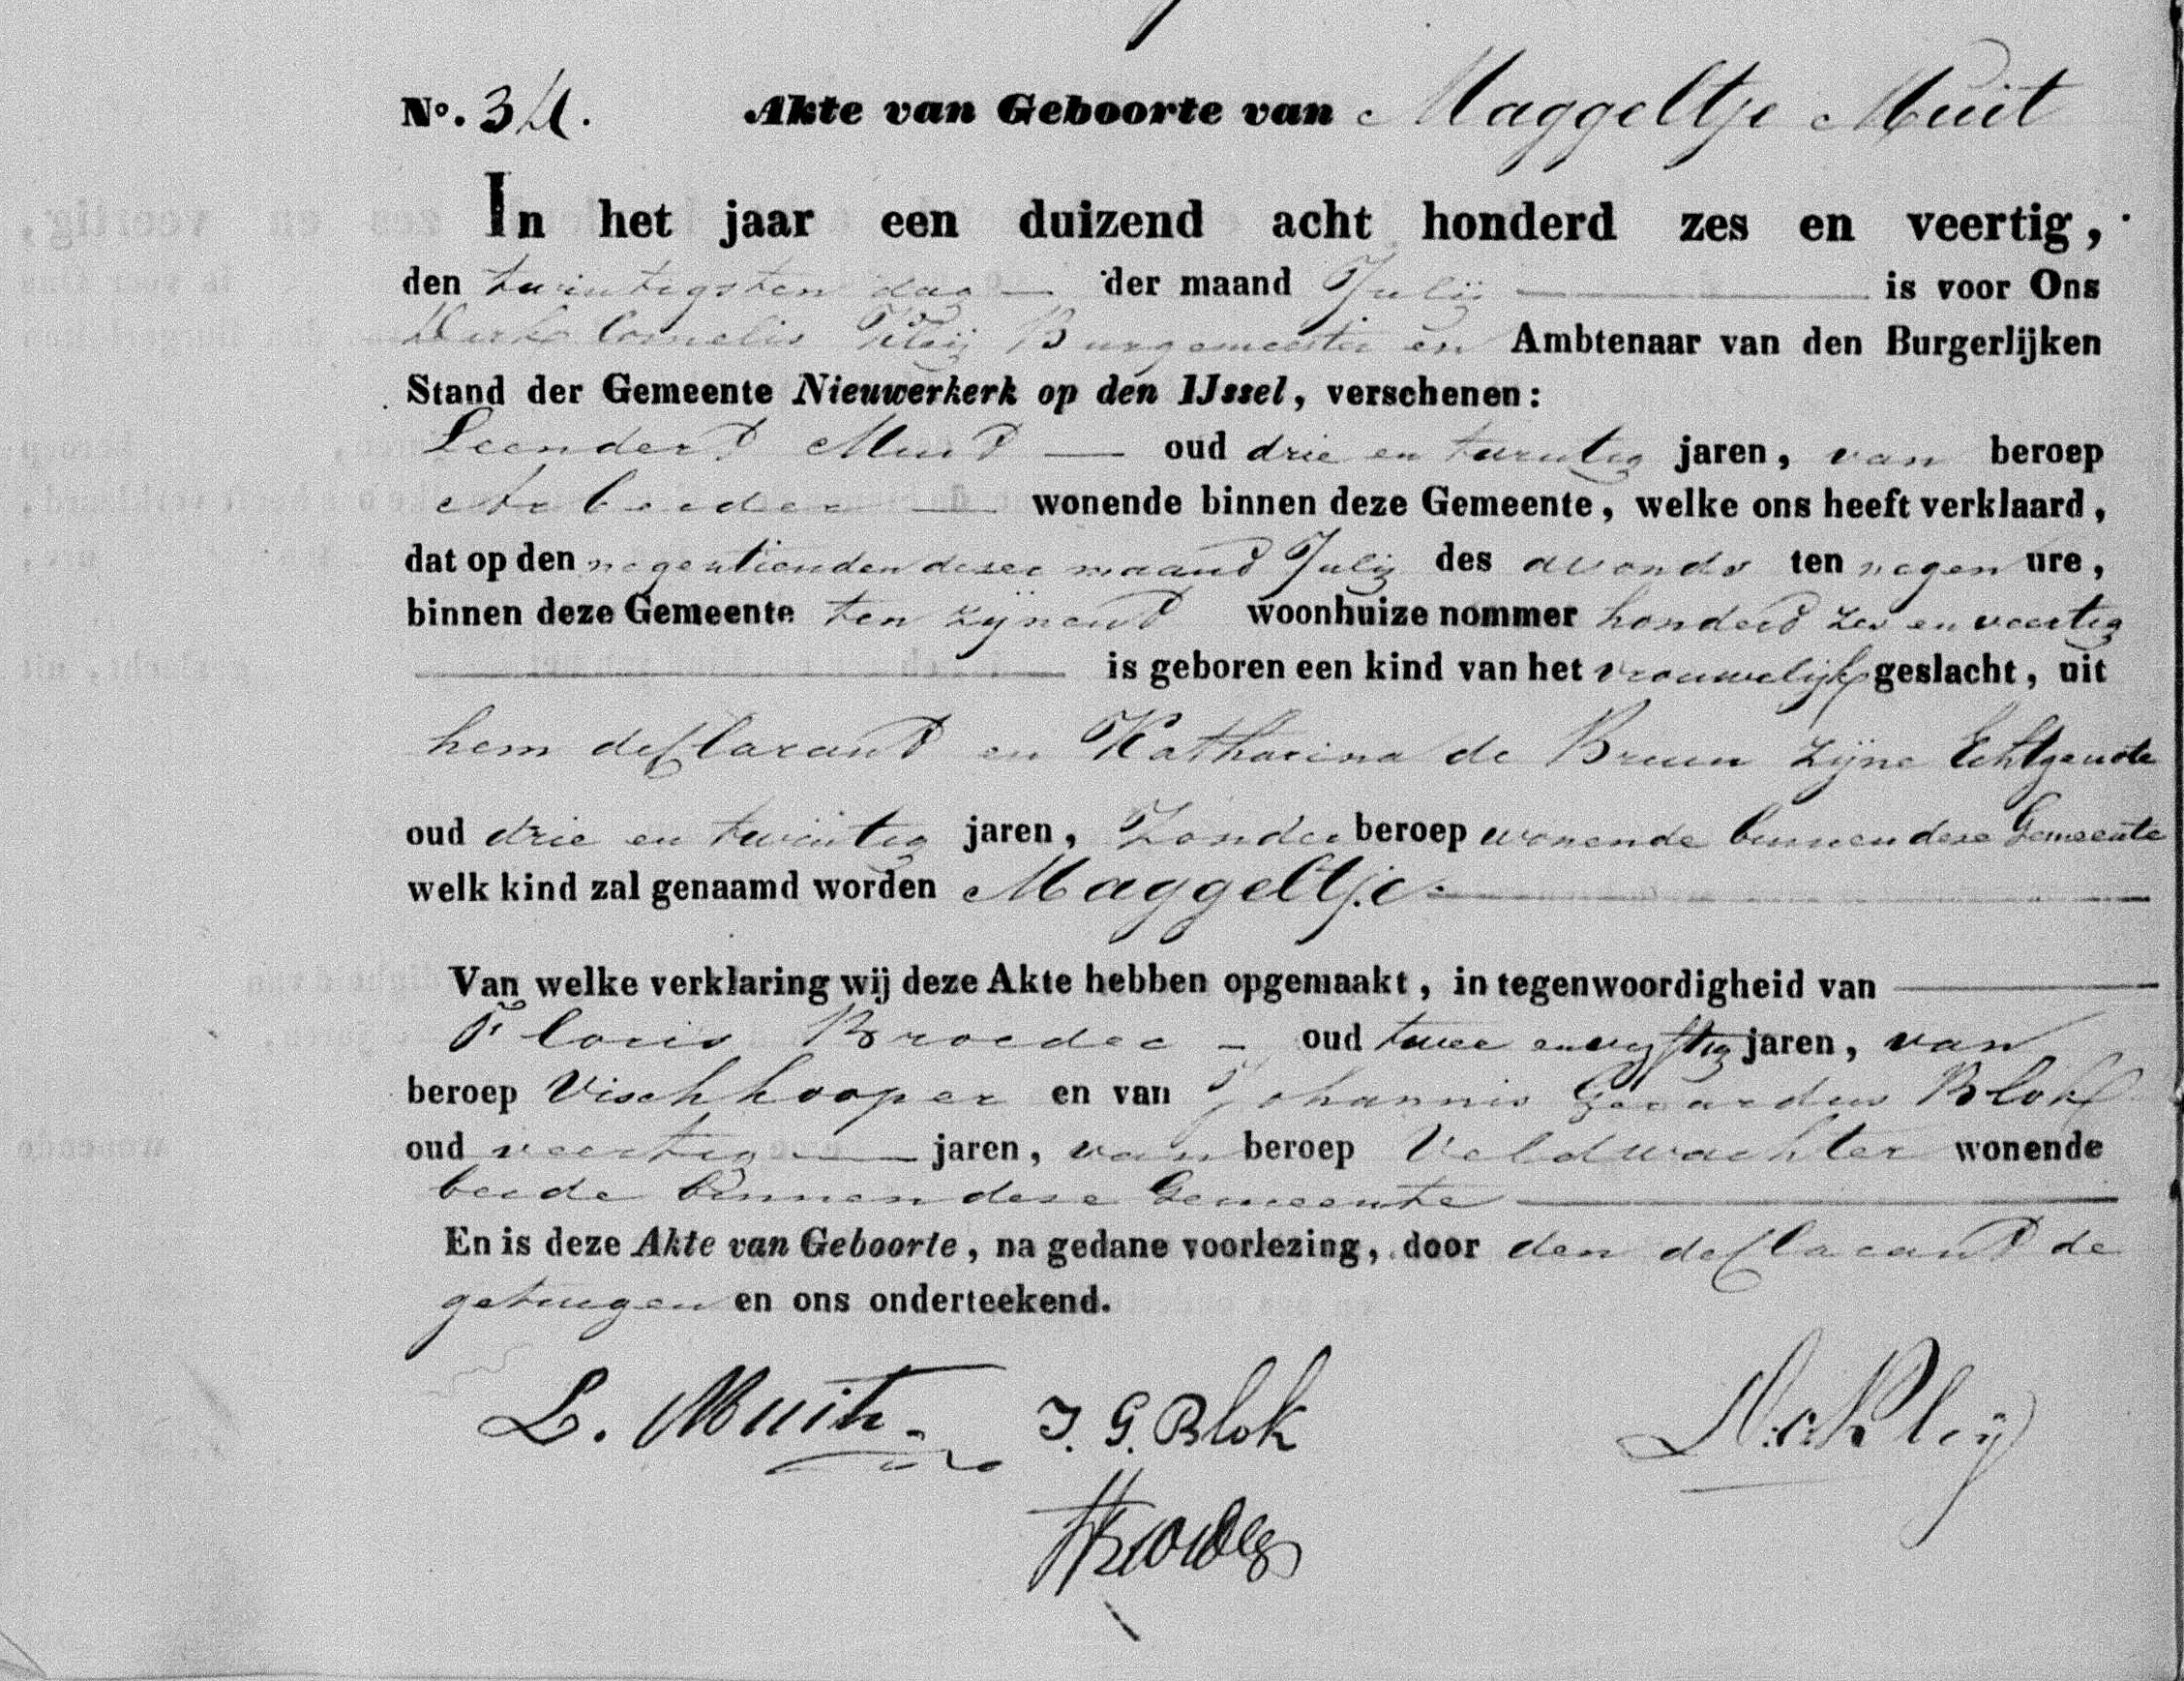 No. 34. Akte van Geboorte van Maggeltje Muit
In het jaar een duizend acht honderd zes en veertig,
den twintigsten dag der maand Julij is voor Ons
Dirk Cornelis Kleij Burgemeester en Ambtenaar van den Burgerlijken
Stand der Gemeente Nieuwerkerk op den IJssel, verschenen:
Leendert Muit oud drie en twintig jaren, van beroep
Arbeider wonende binnen deze Gemeente, welke ons heeft verklaard,
dat op den negentienden dezer maand Julij des avonds ten negen ure,
binnen deze Gemeente ten zijnent woonhuize nommer honderd zes en veertig
is geboren een kind van het vrouwelijk geslacht, uit
hem declarant en Katharina de Bruin zijne Echtgenote
oud drie en twintig jaren, Zonder beroep wonende binnen deze Gemeente
welk kind zal genaamd worden Maggeltje.
Van welke verklaring wij deze Akte hebben opgemaakt, in tegenwoordigheid van
Floris Broeder oud twee en vijftig jaren, van
beroep Vischkooper en van Johannis Gerardus Blok
oud veertig jaren, van beroep Veldwachter wonende
beide binnen deze Gemeente
En is deze Akte van Geboorte, na gedane voorlezing, door den declarant de
getuigen en ons onderteekend.
L. Muit J. G. Blok D. C. Kleij